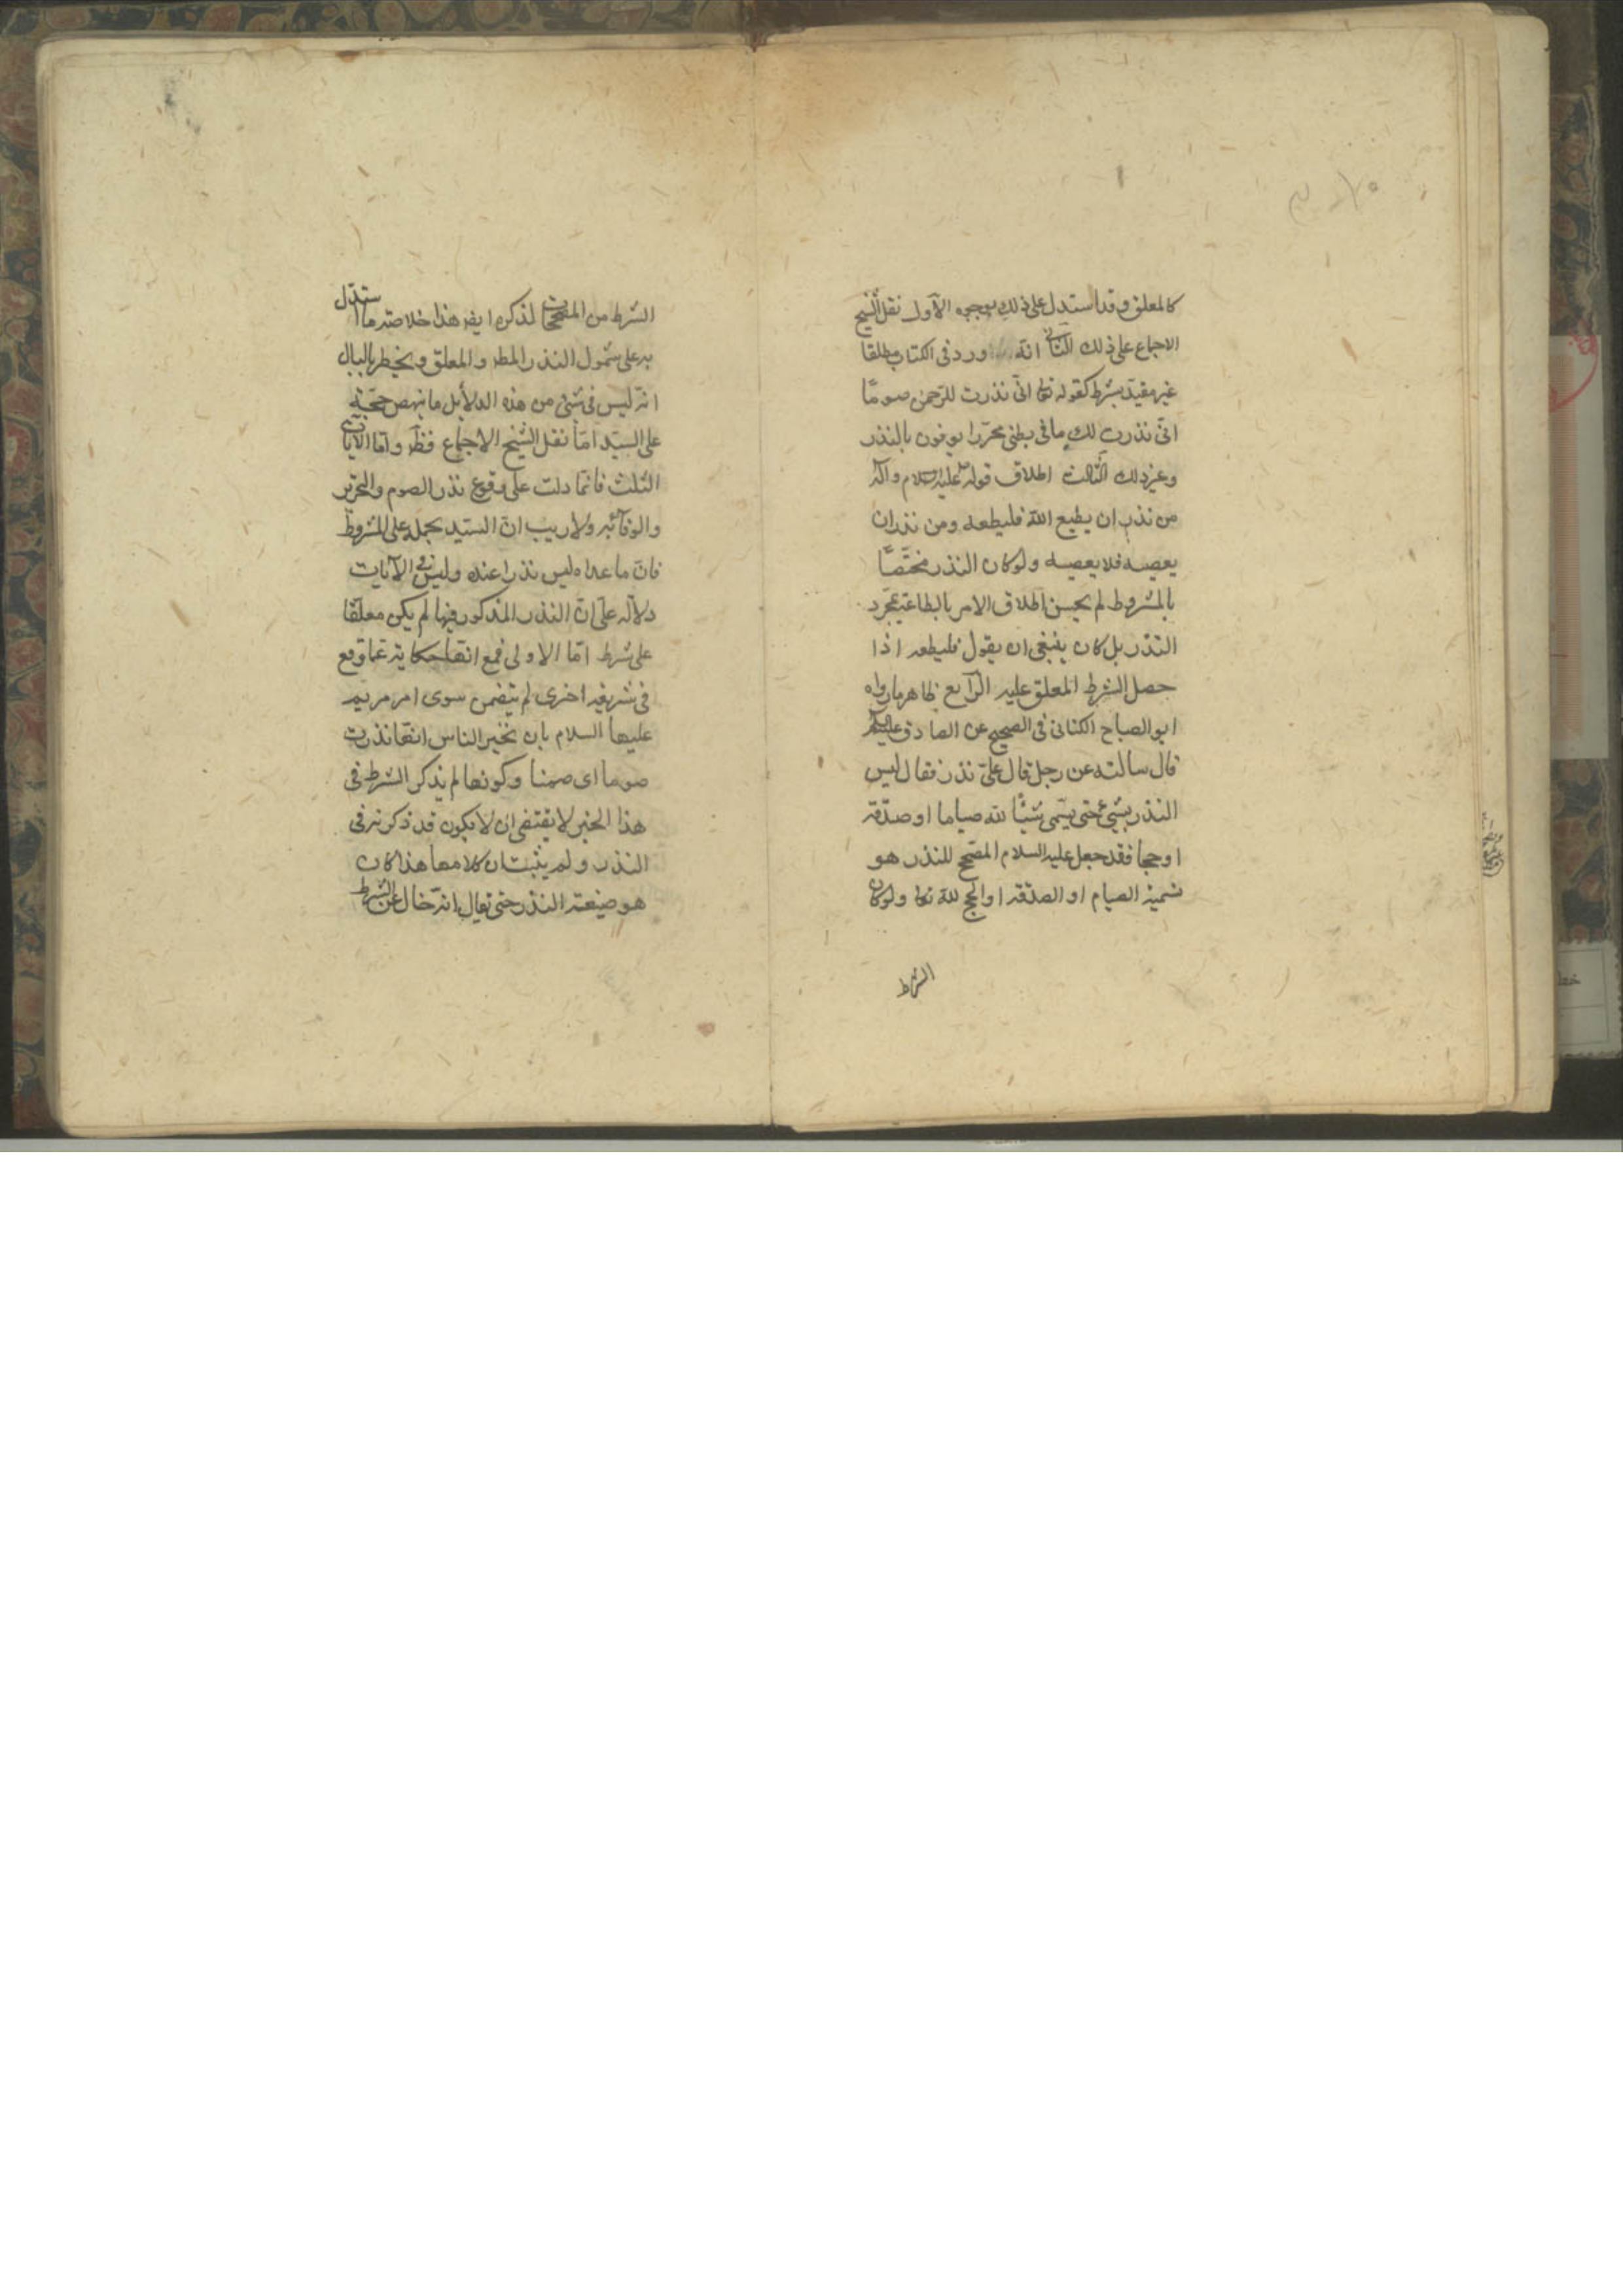 كالمعلق وقد استدل على ذلك بوجوه الأول نقل الشيخ
الاجماع على ذلك الثانى انه ورد فى الكتاب مطلقا
غير مقيد بشرط كقوله تعا انى نذرت للرحمن صوما
انى نذرت لك ما فى بطنى محررا يوفون بالنذر
وغير ذلك الثالث اطلاق قوله عليه السلام وآله
من نذر ان يطيع الله فليطعه ومن نذر ان
يعصيه فلا يعصيه ولو كان النذر مختصا
بالمشروط لم يحسن اطلاق الامر بالطاعة بمجرد
النذر بل كان ينبغى ان يقول فليطعه اذا
حصل الشرط المعلق عليه الرابع ظاهر ما رواه
ابو الصباح الكنانى فى الصحيح عن الصادق عليه السلام
قال سالته عن رجل قال علىّ نذر فقال ليس
النذر بشئ حتى يسمى شيئا لله صياما او صدقة
او حجا فقد جعل عليه السلام المصحح للنذر هو
تسمية الصيام او الصدقة او الحج لله تعا ولو كان
الشرط
الشرط من المصححات لذكره ايضا هذا خلاصة ما استدل
به على شمول النذر المط والمعلق ويخطر بالبال
انه ليس فى شئ من هذه الدلائل ما ينهض حجة
على السيد اما نقل الشيخ الاجماع فظ واما الآيات
الثلث فانما دلت على وقوع نذر الصوم والتحرير
والوفآء به ولا ريب ان السيد يحمله على المشروط
فان ما عداه ليس نذرا عنده وليس فى الآيات
دلالة على ان النذر المذكور فيها لم يكن معلقا
على شرط اما الاولى فمع انها حكاية عما وقع
فى شريعة اخرى لم يتضمن سوى امر مريم
عليها السلام بان تخبر الناس انها نذرت
صوما اى صمتا وكونها لم يذكر الشرط فى
هذا الخبر لا يقتضى ان لا يكون قد ذكرته فى
النذر ولم يثبت ان كلامها هذا كان
هو صيغة النذر حتى يقال انه خال عن الشرط